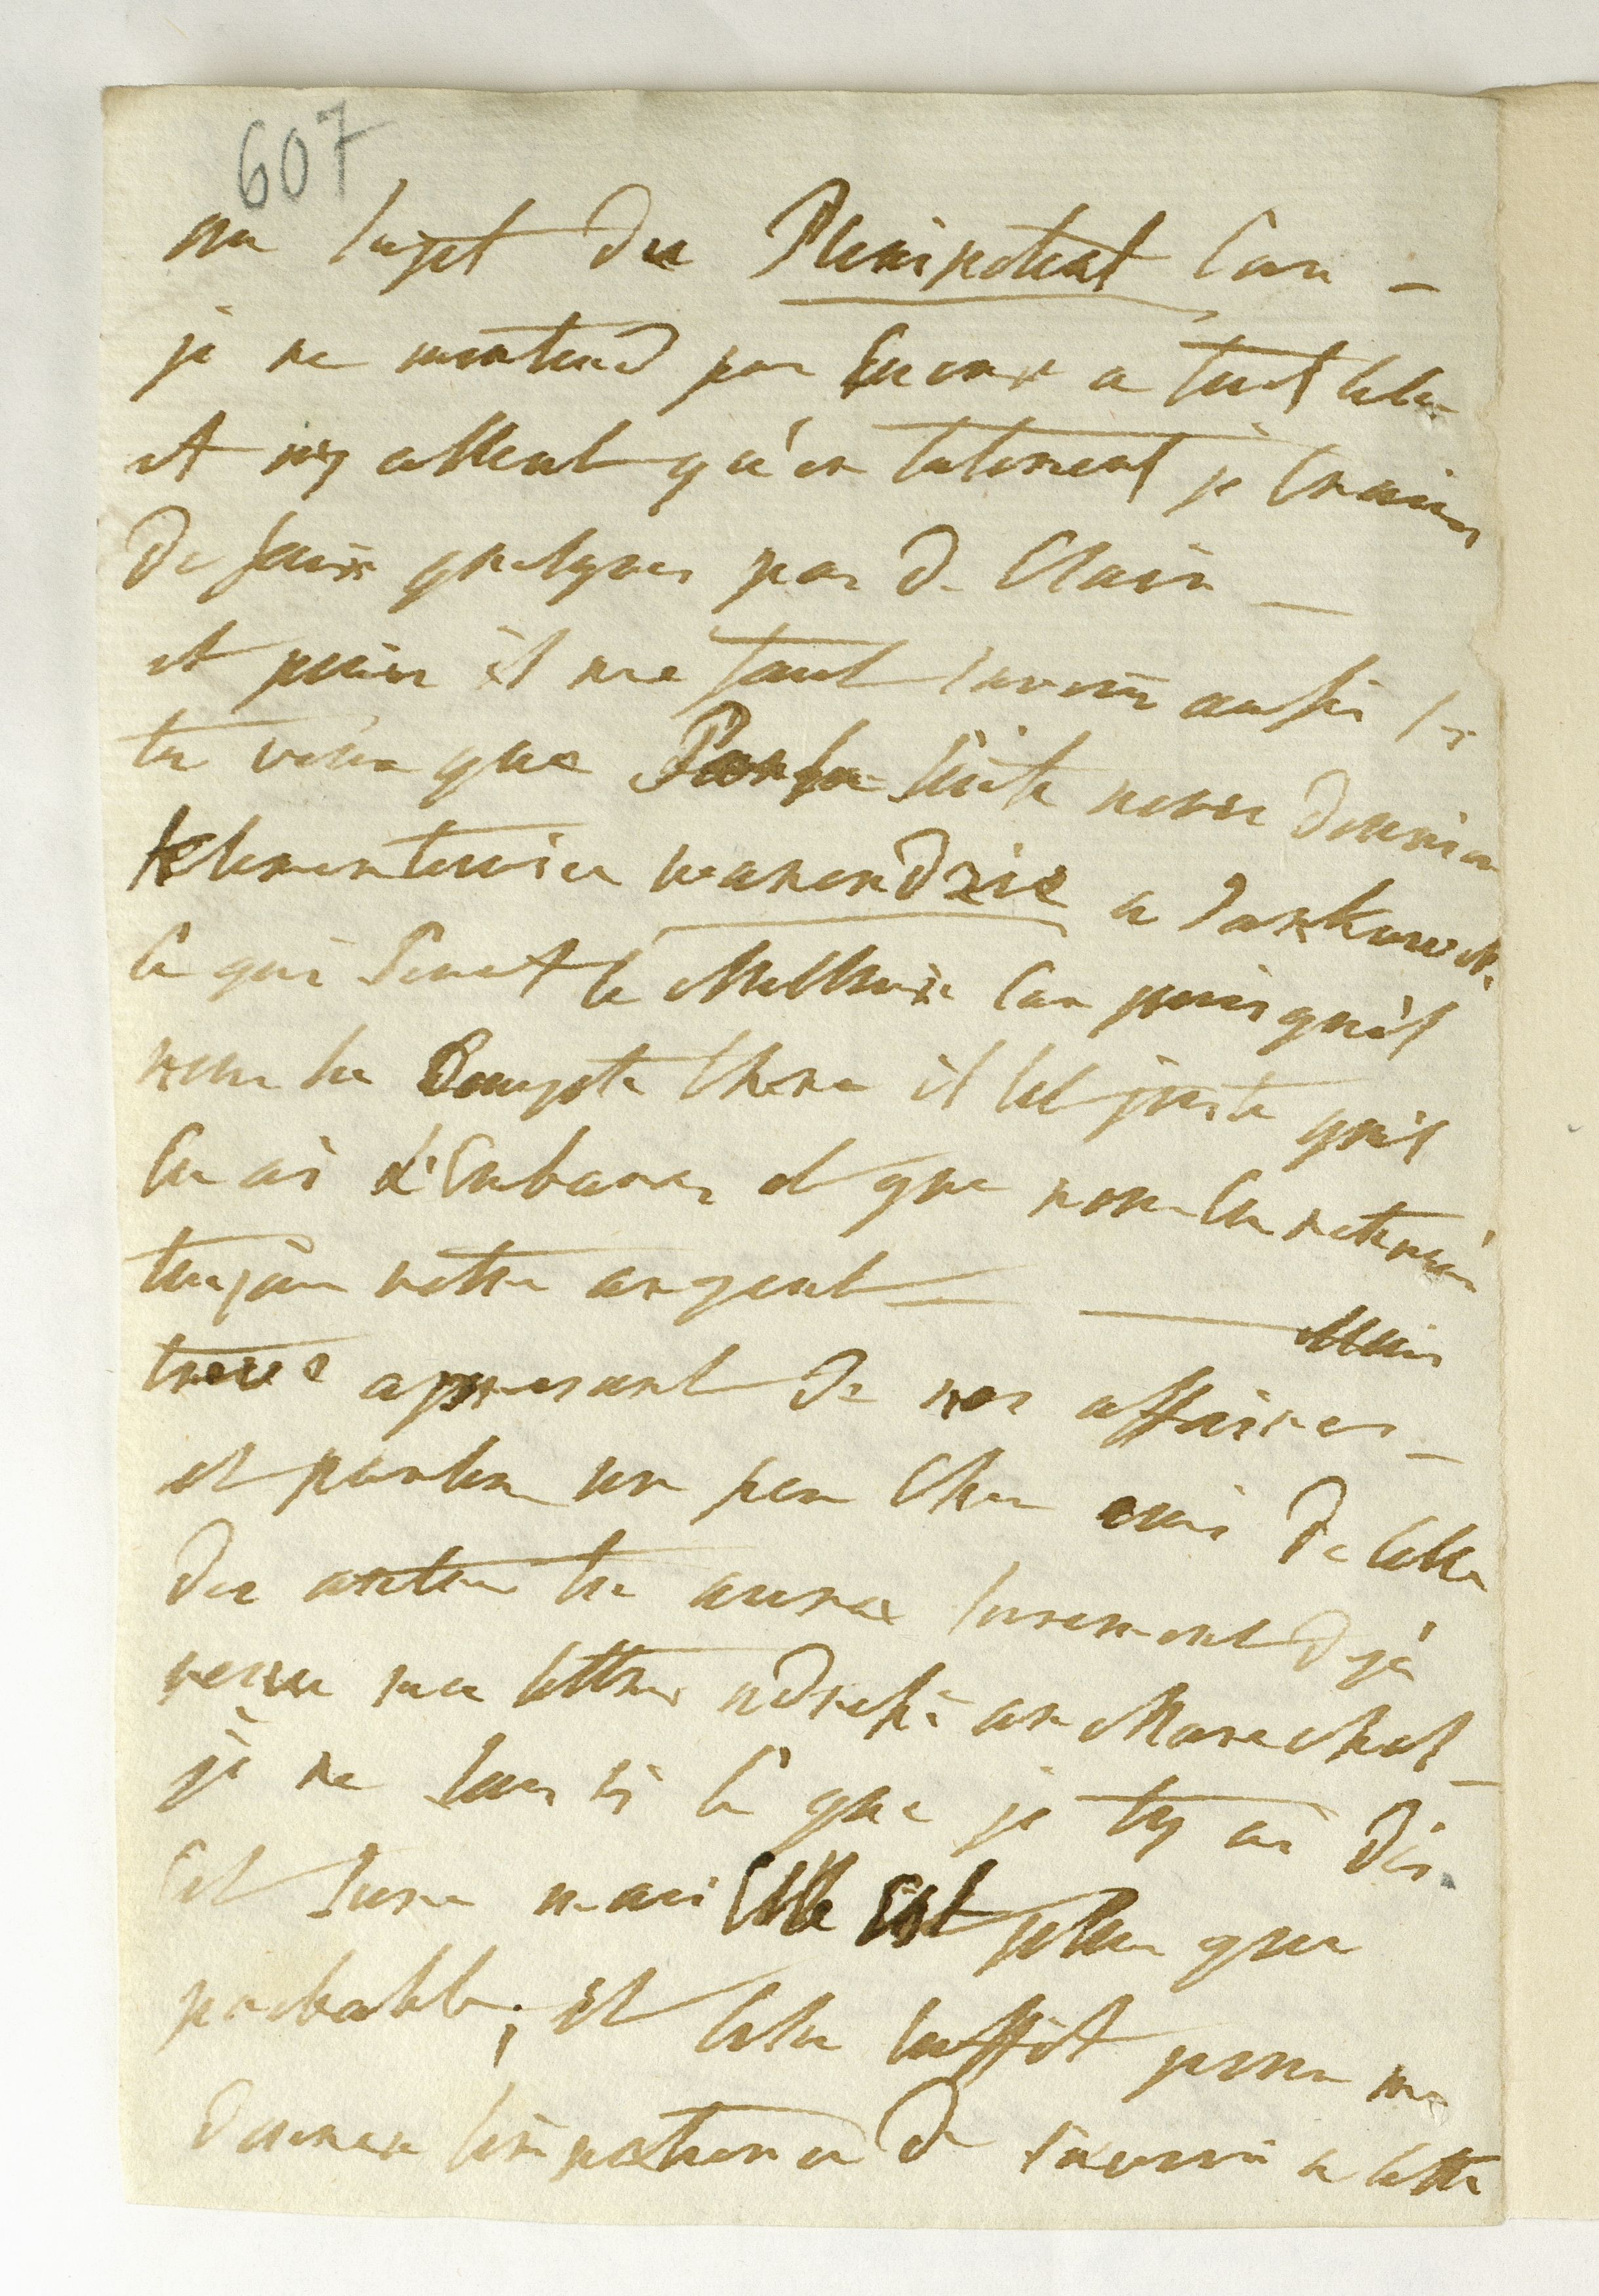 607
au sujet du Plenipotent Car -
je ne mentend pas encore a tout cela
et ny allent qu'en tatonent je crains
de faire quelques pas d. Clair -
et puis il me faut savoir aussi si
tu veux que par la suite nous donnion
Klementowice w arendzie a Jankowski
ce qui seroit le Meilleure car puis qu'il
nous la Compte chere il est juste qu'il
en ai l'Embaras et que nous en retirion
toujour notre argent - - Mais
treve apresent de nos affaires -
et parlon un peu cher ami de celle
des autres tu auras surement deja
recue ma lettre adressé au Marechal -
je ne sais si ce que je ty ai dis
est sure mais Elle Est plus que
probable ; et cela suffit pour me
donner l'impatience de savoir a cette